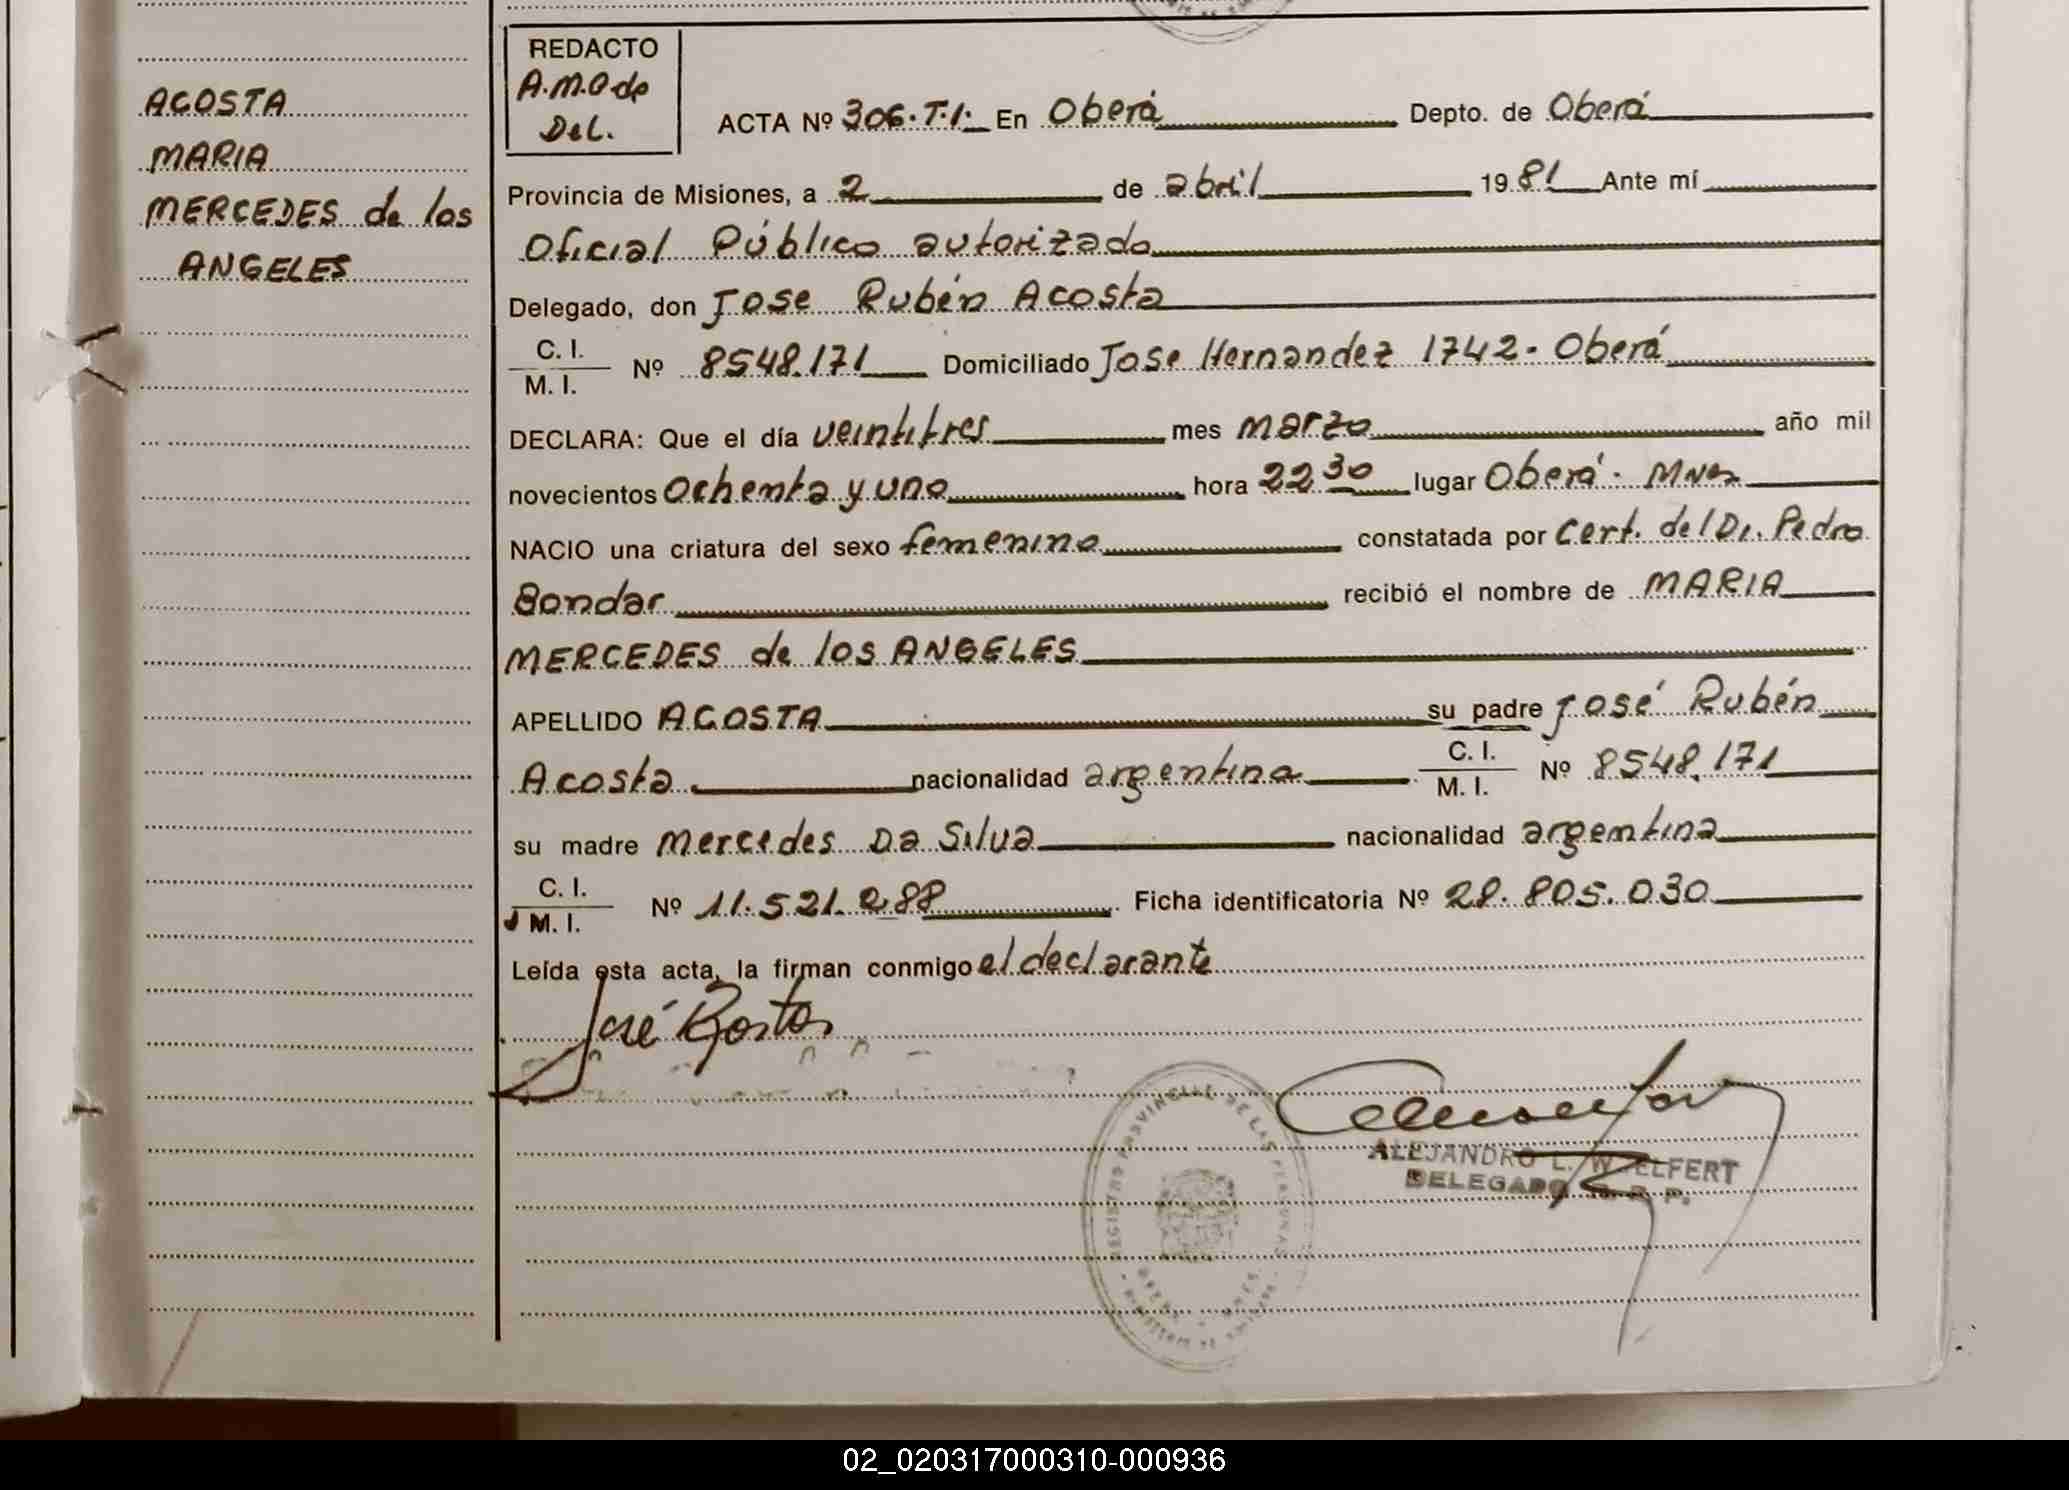 ACOSTA
MARIA
MERCEDES de los
ANGELES
REDACTO
A.M.O de
Del.
ACTA Nº 306.T.1. En Oberá Depto. de Oberá
Provincia de Misiones, a 2 de abril 1981 Ante mí
Oficial Público autorizado
Delegado, don Jose Rubén Acosta
C. I.
M. I. Nº 8548.171 Domiciliado Jose Hernandez 1742. Oberá
DECLARA: Que el día veintitres mes marzo año mil
novecientos ochenta y uno hora 22 30 lugar Oberá. Mnes
NACIO una criatura del sexo femenino constatada por Cert. del Dr. Pedro
Bondar recibió el nombre de MARIA
MERCEDES de los ANGELES
APELLIDO ACOSTA su padre José Rubén
Acosta nacionalidad argentina C. I.
M. I. Nº 8548.171
su madre Mercedes Da Silva nacionalidad argentina
C. I.
M. I. Nº 11.521.288 Ficha identificatoria Nº 28.805.030
Leída esta acta, la firman conmigo el declarante
José
REGISTRO PROVINCIAL DE LAS PERSONAS
ALEJANDRO L. ELFERT
DELEGADO R. P.
02_020317000310-000936